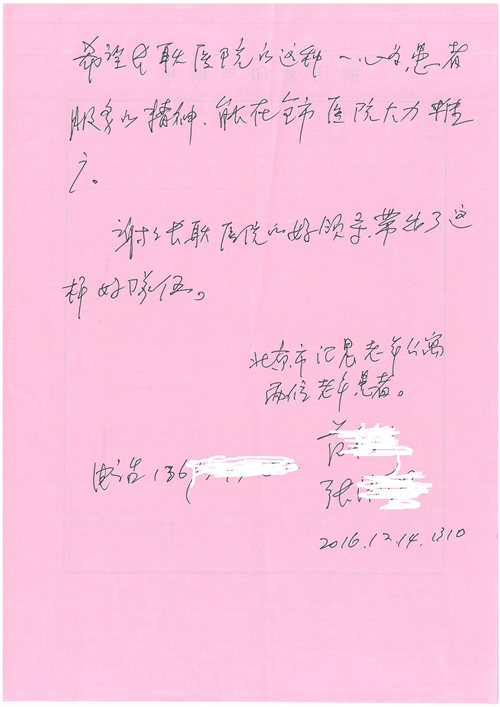 希望长联医院的这种一心为患者
服务的精神,能在全市医院大力推
广。
谢谢长联医院的好领导,带出了这
样好队伍。
北京市汇晨老年公寓
两位老年患者。
范
电话136
张
2016.12.14.1310